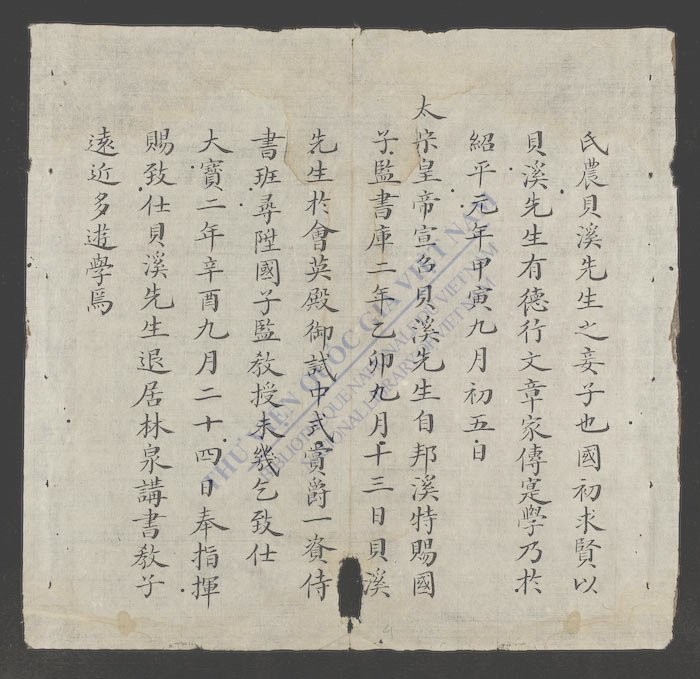 氏農貝溪先生之妾子也國初求賢以
貝溪先生有德行文章家傳寔學乃於
紹平元年甲寅九月初五日
太宗皇帝宣召貝溪先生自邦溪特賜國
子監書庫二年乙卯九月十三日貝溪
先生於會英殿御試中式賞爵一資侍
書班尋陞國子監教授未幾乞致仕
大寶二年辛酉九月二十四日奉指揮
賜致仕貝溪先生退居林泉講書教子
遠近多遊學焉
THƯ VIỆN QUỐC GIA VIỆT NAM
BIBLIOTHEQUE NATIONALE DU VIETNAM
NATIONAL LIBRARY OF VIETNAM